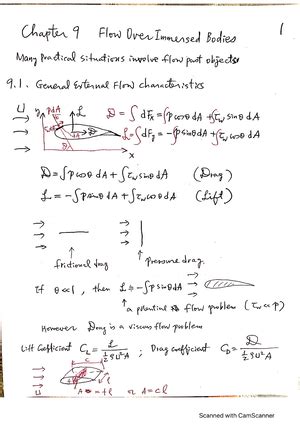 1
Chapter 9 Flow Over Immersed Bodies
Many practical situations involve flow past objects
9.1. General External Flow characteristics
U y pdA L
D = ∫dFx = ∫pcosθdA + ∫τw sinθdA
L = ∫dFy = -∫psinθdA + ∫τw cosθdA
θ x
D = ∫pcosθdA + ∫τw sinθdA (Drag)
L = -∫psinθdA + ∫τw cosθdA (Lift)
frictional drag pressure drag.
If θ<<1, then L ≈ -∫psinθdA
a potential flow problem (τw << p)
However Drag is a viscous flow problem
Lift Coefficient CL = L / ½ρU²A ; Drag coefficient CD = D / ½ρU²A
c
U l
A = cl
Scanned with CamScanner